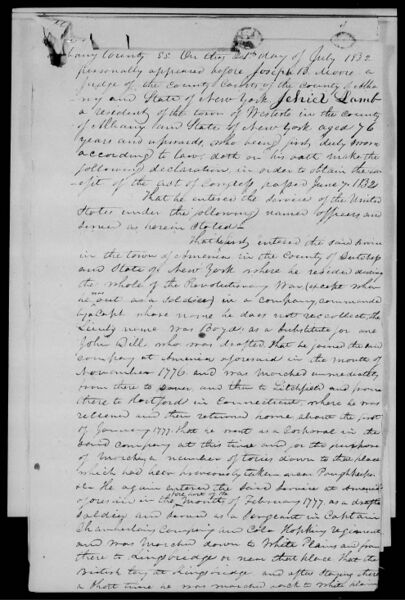 Albany County SS. On this 21st day of July 1832
personally appeared before Joseph B. Moore a
Judge of the County Courts of the County of Alba
ny and State of New York Jehiel Lamb
a resident of the town of Westerlo in the county
of Albany and State of New York aged 76
years and upwards, who being first duly sworn
according to law, doth on his oath make the
following declaration, in order to obtain the ben
efit of the act of Congress passed June 7, 1832
That he entered the service of the United
States under the following named officers and
served as herein Stated
That he entered the said service
in the town of Amenia in the County of Dutchess
and State of New York where he resided during
the whole of the Revolutionary War (except when
he was out as a Soldier) in a company commanded
by a Capt whose name he does not recollect, the
Lieuts name was Boyd as a Substitute for one
John Dill who was drafted that he joined the said
company at Amenia aforesaid in the month of
November 1776 and was marched immediately
from there to and then to Litchfield and from
there to Hartford in Connecticut, where he was
released and then returned home about the first
of January 1777. that he went as a Corporal in the
said company at this time and for the purpose
of a number of tories down to that place
which had been previously taken near Poughkeep
sie He again entered the said service at Amenia
aforesaid in the fore part of the month of February 1777 as a drafted
Soldier and served as a Sergeant in Captain
Chamberlains Company and Colo Hopkins regiment
and was marched down to White Plains and from
there to Kingsbridge or near that place that the
British lay at Kingsbridge and after staying there
a short time he was marched back to White Plains